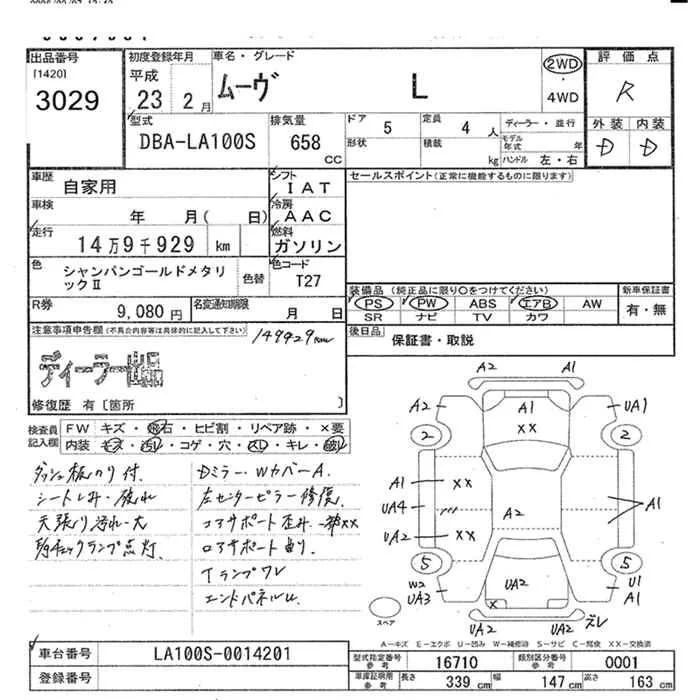 出品番号
[1420]
3029
初度登録年月
平成
23 2月
車名・グレード
ムーヴ L
2WD
・
4WD
評価点
R
外装 内装
D D
型式
DBA-LA100S
排気量
658
CC
ドア 5
定員 4 人
形状
積載 kg
ディーラー・並行
モデル年式 年
ハンドル 左・右
車歴
自家用
シフト
IAT
車検
年 月( 日)
冷房
AAC
走行
14万9千929 km
燃料
ガソリン
色
シャンパンゴールドメタリックⅡ
色替
色コード
T27
R券
9,080円
名変通知期限
月 日
セールスポイント(正常に機能するものに限ります)
装備品(純正品に限り〇をつけてください)
PS PW ABS エアB AW
SR ナビ TV カワ
新車保証書
有・無
後日品
保証書・取説
注意事項申告欄(不具合内容等は具体的に記入して下さい)
149929km
修復歴 有〔箇所 〕
検査員記入欄
FW キズ・飛石・ヒビ割・リペア跡・×要
内装 キズ・汚れ・コゲ・穴・スレ・キレ・破れ
ダッシュ板のり付
シートしみ・破れ
天張り汚れ・大
Dミラー・WカバーA.
左センターピラー修復
コアサポート歪み 一部××
ロアサポート曲り.
エンドパネルU
A2 A1
A2 A1 UA1
××
2 2
A1 ××
UA4
A2
A1
UA2 ××
5 5
W2
UA3
UA2
×
U1
A1
UA2 UA2 ズレ
スペア
A-キズ E-エクボ U-凹み W-補修跡 S-サビ C-腐食 XX-交換済
車台番号
LA100S-0014201
登録番号
型式指定番号
参考
16710
類別区分番号
参考
0001
車庫証明用
参考
長さ 339 cm
幅 147 cm
高さ 163 cm